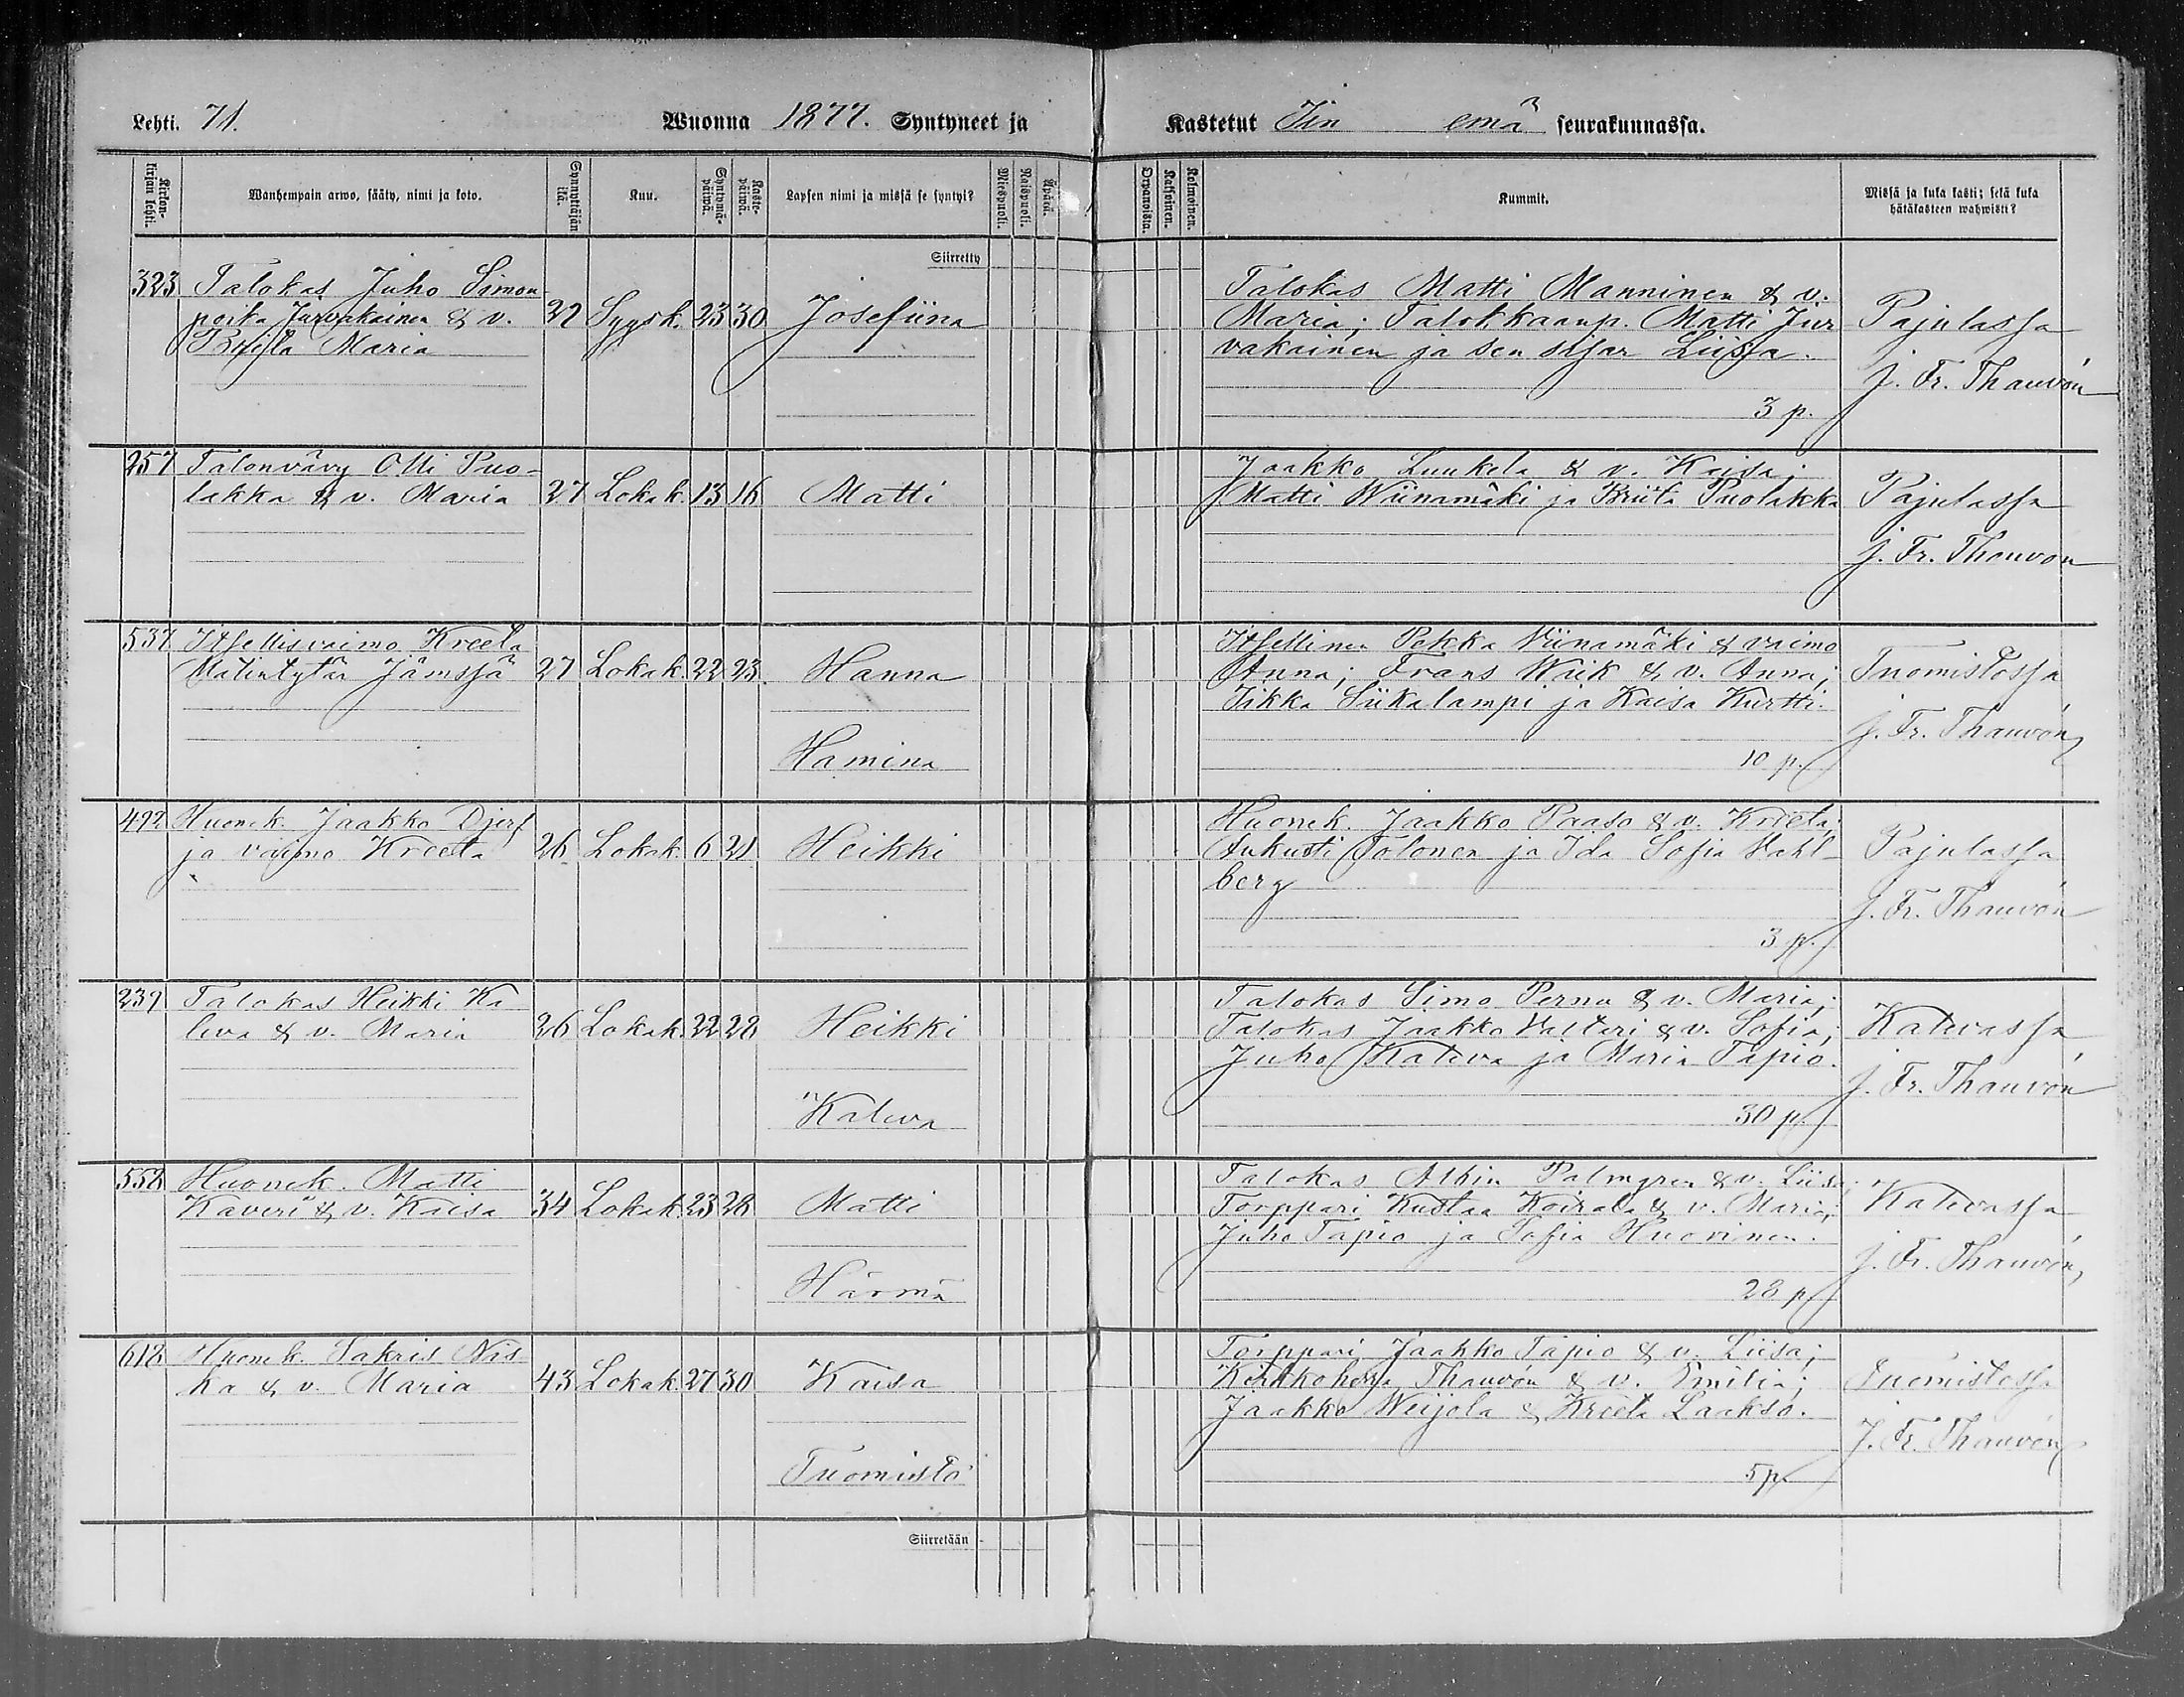 Lehti. 71.
Wuonna 1877. Syntyneet ja Kastetut Iin emä seurakunnassa.
Kirkonkirjan lehti.
Wanhempain arwo, sääty, nimi ja koto.
Synnyttäjän ikä.
Kuu.
Syntymäpäiwä.
Kastepäiwä.
Lapsen nimi ja missä se syntyi?
Miespuoli.
Naispuoli.
Äpärä.
Orpanoisia.
Kaksoinen.
Kolmoinen.
Kummit.
Missä ja kuka kasti; sekä kuka
hätäkasteen wahwisti?
Siirretty
323 Talokas Juho Simon
poika Jurvakainen & v.
Maria
22 Syysk. 23 30 Josefiina
Talokas Matti Manninen & v.
Maria; Talokkaanp. Matti Jur
vakainen ja sen sisar Liisa.
3 p.
Pajulassa
J. Fr. Thauvón
257 Talonvävy Olli Puo-
lakka & v. Maria
27 Lokak. 13 16 Matti
Jaakko Luukela & v. Kaisa;
Matti Wiinamäki ja Briita Puolakka
Pajulassa
J. Fr. Thauvon
537 Itsellisvaimo Kreeta
Matintytär Jämssä
27 Lokak. 22 23. Hanna
Hamina
Itsellinen Pekka Viinamäki & vaimo
Anna; Frans Wiik & v. Anna;
Iikka Siikalampi ja Kaisa Kurtti.
10 p.
Tuomistossa
J. Fr. Thauvón
492 Huonek. Jaakko Djerf
ja vaimo Kreeta
26 Lokak. 6 21 Heikki
Huonek. Jaakko Paaso & v. Kreeta;
Aukusti Tolonen ja Ida Sofia Vahl-
berg
3 p.
Pajulassa
J. Fr. Thauvón
239 Talokas Heikki Ka
leva & v. Maria
26 Lokak. 22 28 Heikki
Kaleva
Talokas Simo Pernu & v. Maria;
Talokas Jaakko Valtari & v. Sofia;
Juho Kaleva ja Maria Tapio.
30 p.
Kalevassa
J. Fr. Thauvón
558 Huonek. Matti
Kaveri & v. Kaisa
34 Lokak. 23 28 Matti
Härmä
Talokas Albin Palmgren & v. Liisa;
Torppari Kustaa Koirala & v. Maria;
Juho Tapio ja Sofia Huovinen.
28 p
Kalevassa
J. Fr. Thauvón
618 Huonek. Sakris Nis
ka & v. Maria
43 Lokak. 27 30 Kaisa
Tuomisto
Torppari Jaakko Tapio & v. Liisa;
Kirkkoherra Thauvón & v. Emilia;
Jaakko Weijola & Kreeta Laakso.
5 p.
Tuomistossa
J. Fr. Thauvón
Siirretään